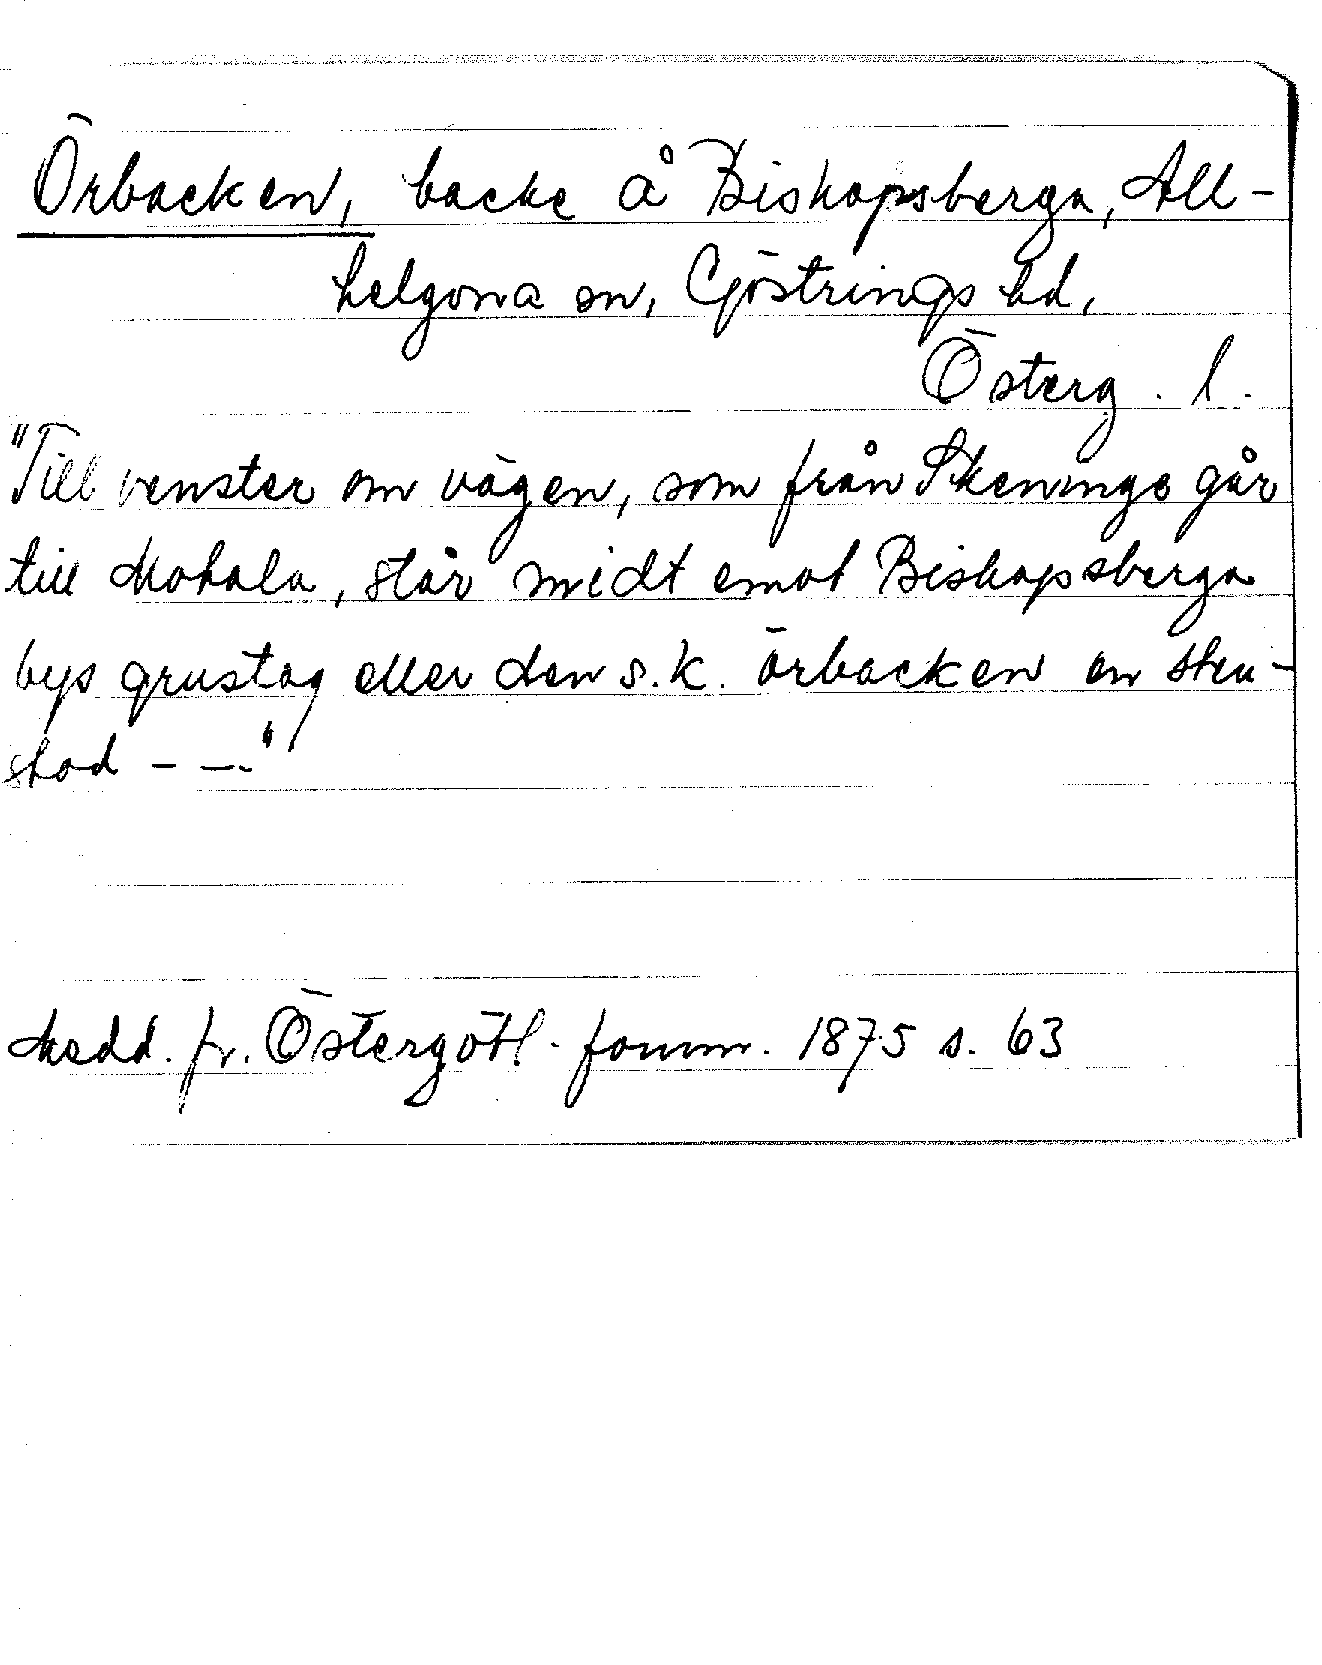 Örbacken, backe å Biskopsberga, All-
helgona sn, Göstrings hd,
Österg. l.
"Till venster om vägen, som från Skeninge går
till Motala, står midt emot Biskopsberga
bys grustag eller den s.k. örbacken en sten-
stod - -."
Medd. fr. Östergötl. fornm. 1875 s. 63